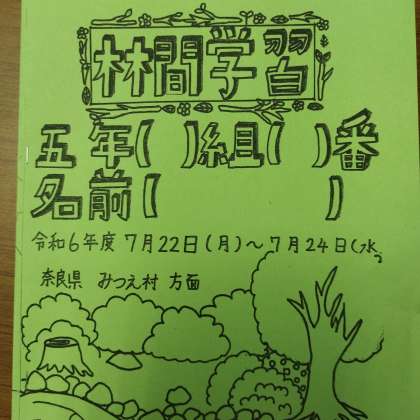 林間学習
五年( )組( )番
名前( )
令和6年度 7月22日(月)〜7月24日(水)
奈良県 みつえ村 方面